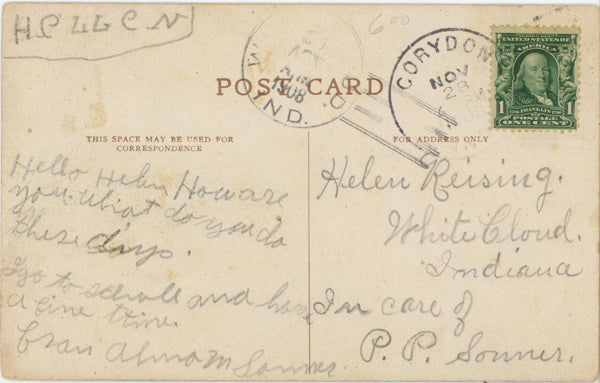 HELLEN
6 00
W
1908
IND.
CORYDON
NOV
28
SERIES 1902
UNITED STATES OF
AMERICA
1 FRANKLIN 1
POSTAGE
ONE CENT
POST CARD
THIS SPACE MAY BE USED FOR
CORRESPONDENCE
FOR ADDRESS ONLY
Hello Helen How are
you. What do you do
these days.
I go to schole and have
a fine time.
Alma M Sonner.
Helen Reising.
White Cloud.
Indiana
In care of
P. P. Sonner.